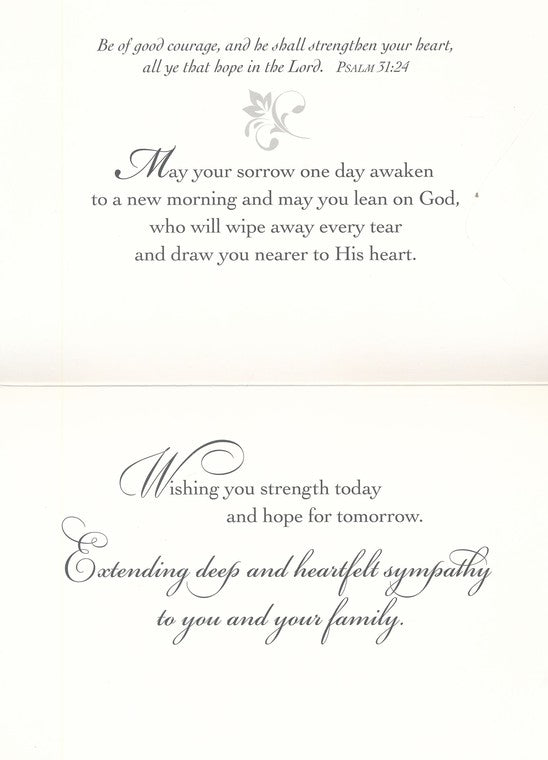 Be of good courage, and he shall strengthen your heart,
all ye that hope in the Lord. Psalm 31:24
May your sorrow one day awaken
to a new morning and may you lean on God,
who will wipe away every tear
and draw you nearer to His heart.
Wishing you strength today
and hope for tomorrow.
Extending deep and heartfelt sympathy
to you and your family.